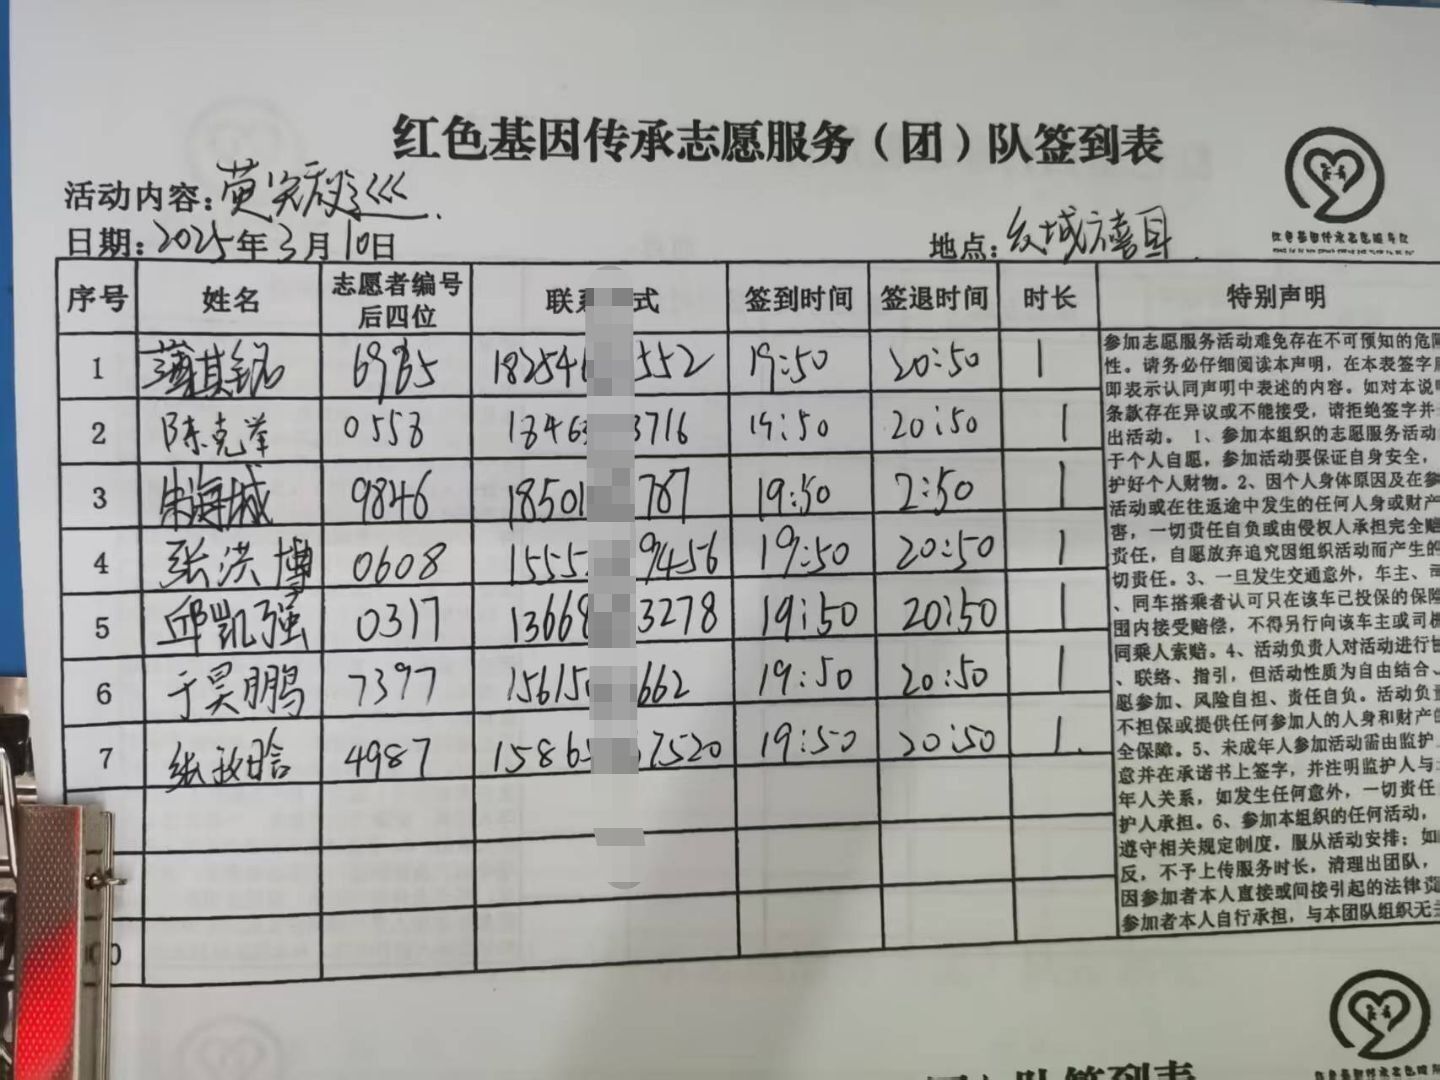 红色基因传承志愿服务（团）队签到表
活动内容：
日期：2025年3月10日
地点：
序号 姓名 志愿者编号后四位 联系 式 签到时间 签退时间 时长 特别声明
1 6985 18254 552 19:50 20:50 1
2 陈克举 0558 18463 3716 19:50 20:50 1
3 朱海城 9846 18501 787 19:50 2:50 1
4 张洪博 0608 1555 9456 19:50 20:50 1
5 邱凯强 0317 13668 3278 19:50 20:50 1
6 于昊鹏 7397 15615 662 19:50 20:50 1
7 张政晗 4987 15865 7520 19:50 20:50 1.
0
参加志愿服务活动难免存在不可预知的危险
性。请务必仔细阅读本声明，在本表签字
即表示认同声明中表述的内容。如对本说明
条款存在异议或不能接受，请拒绝签字并
出活动。1、参加本组织的志愿服务活动
于个人自愿，参加活动要保证自身安全，
护好个人财物。2、因个人身体原因及在参
活动或在往返途中发生的任何人身或财产
害，一切责任自负或由侵权人承担完全赔
责任，自愿放弃追究因组织活动而产生的
切责任。3、一旦发生交通意外，车主、司
、同车搭乘者认可只在该车已投保的保险
围内接受赔偿，不得另行向该车主或司机
同乘人索赔。4、活动负责人对活动进行
、联络、指引，但活动性质为自由结合、
愿参加、风险自担、责任自负。活动负责
不担保或提供任何参加人的人身和财产的
全保障。5、未成年人参加活动需由监护
意并在承诺书上签字，并注明监护人与
年人关系，如发生任何意外，一切责任
护人承担。6、参加本组织的任何活动，
遵守相关规定制度，服从活动安排；如
反，不予上传服务时长，清理出团队，
因参加者本人直接或间接引起的法律责
参加者本人自行承担，与本团队组织无
队签到表